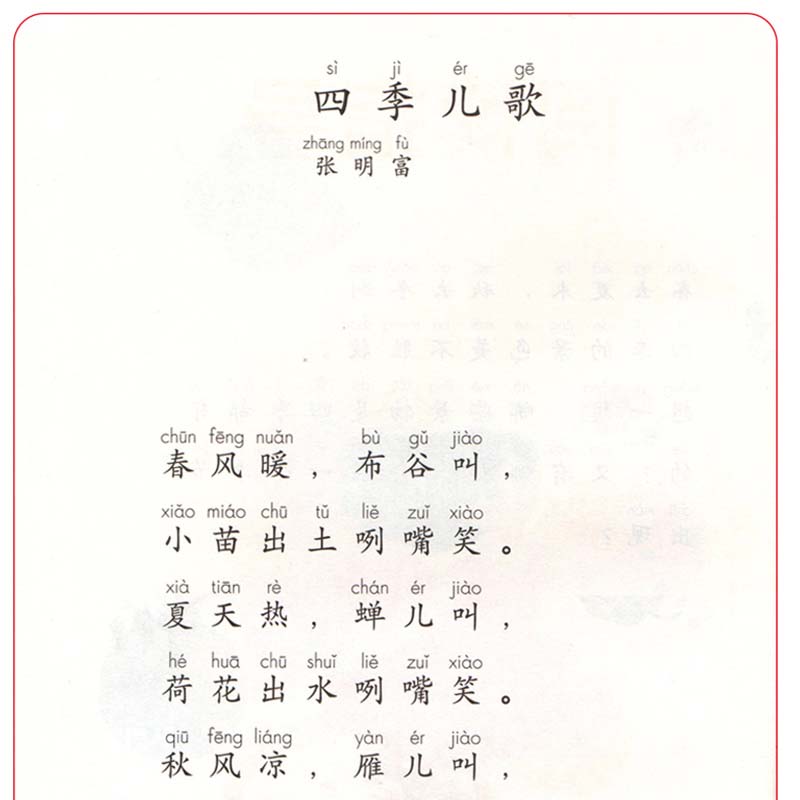 sì jì ér gē
四季儿歌
zhāng míng fù
张明富
chūn fēng nuǎn bù gǔ jiào
春风暖，布谷叫，
xiǎo miáo chū tǔ liě zuǐ xiào
小苗出土咧嘴笑。
xià tiān rè chán ér jiào
夏天热，蝉儿叫，
hé huā chū shuǐ liě zuǐ xiào
荷花出水咧嘴笑。
qiū fēng liáng yàn ér jiào
秋风凉，雁儿叫，